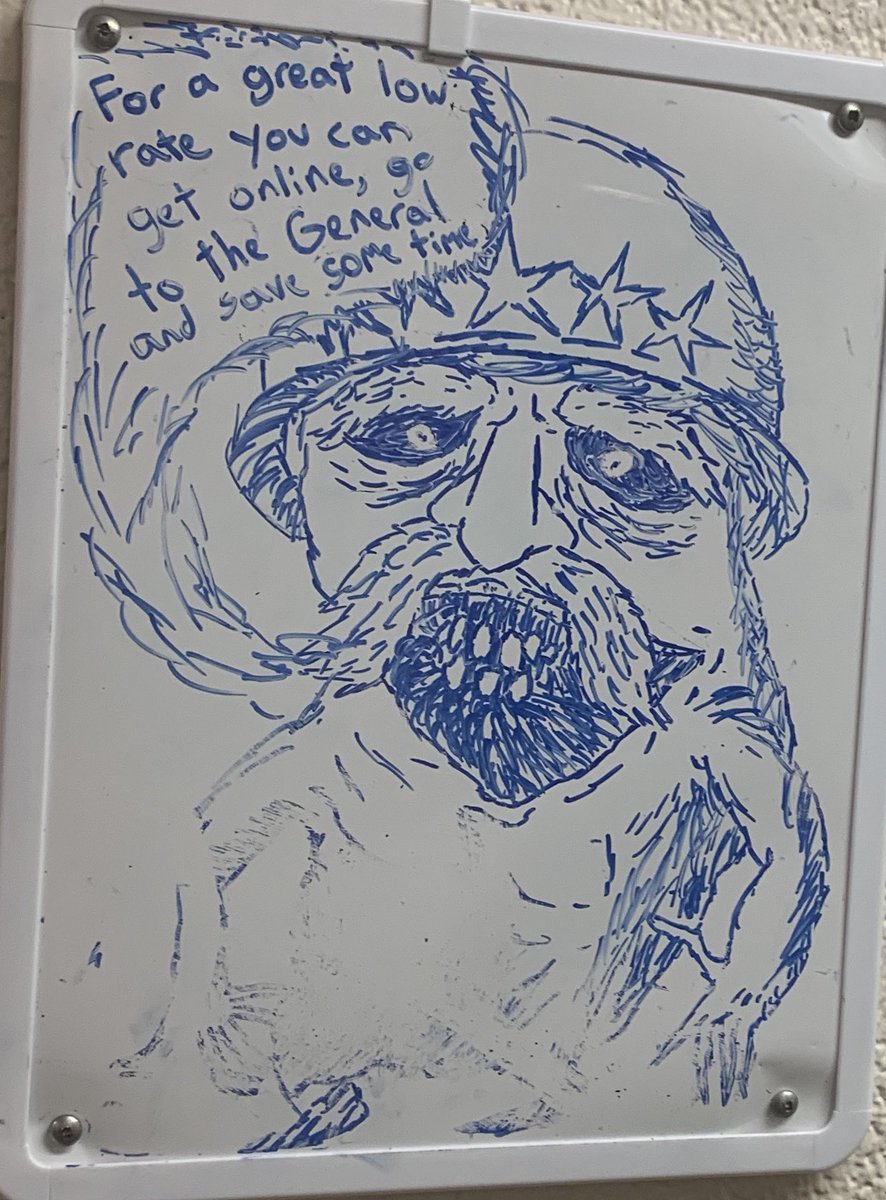 For a great low
rate you can
get online, go
to the General
and save some time